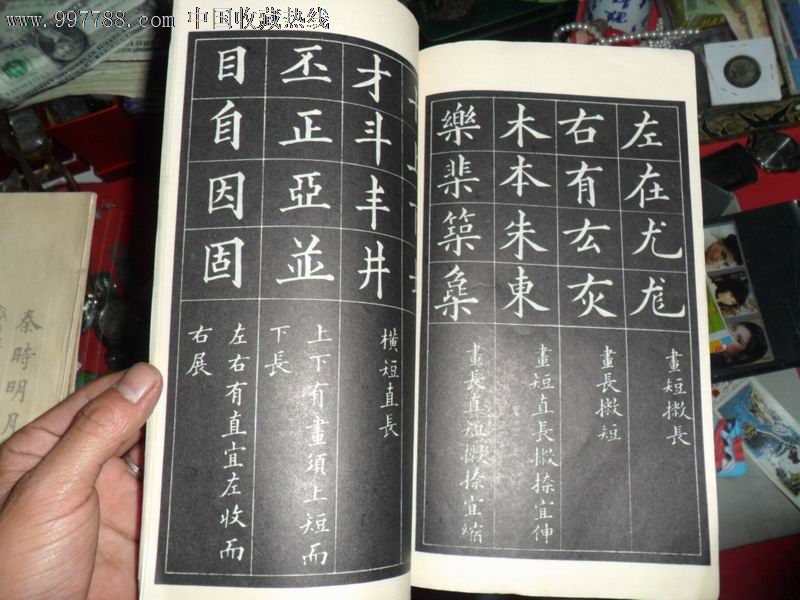 www.997788.com 中国收藏热线
左在尤尨
畫短撇長
右有厷灰
畫長撇短
木本朱東
畫短直長撇捺宜伸
樂棐築
畫長直短撇捺宜縮
才斗丰井
橫短直長
丕正亞並
上下有畫須上短而
下長
目自因固
左右有直宜左收而
右展
秦時明月